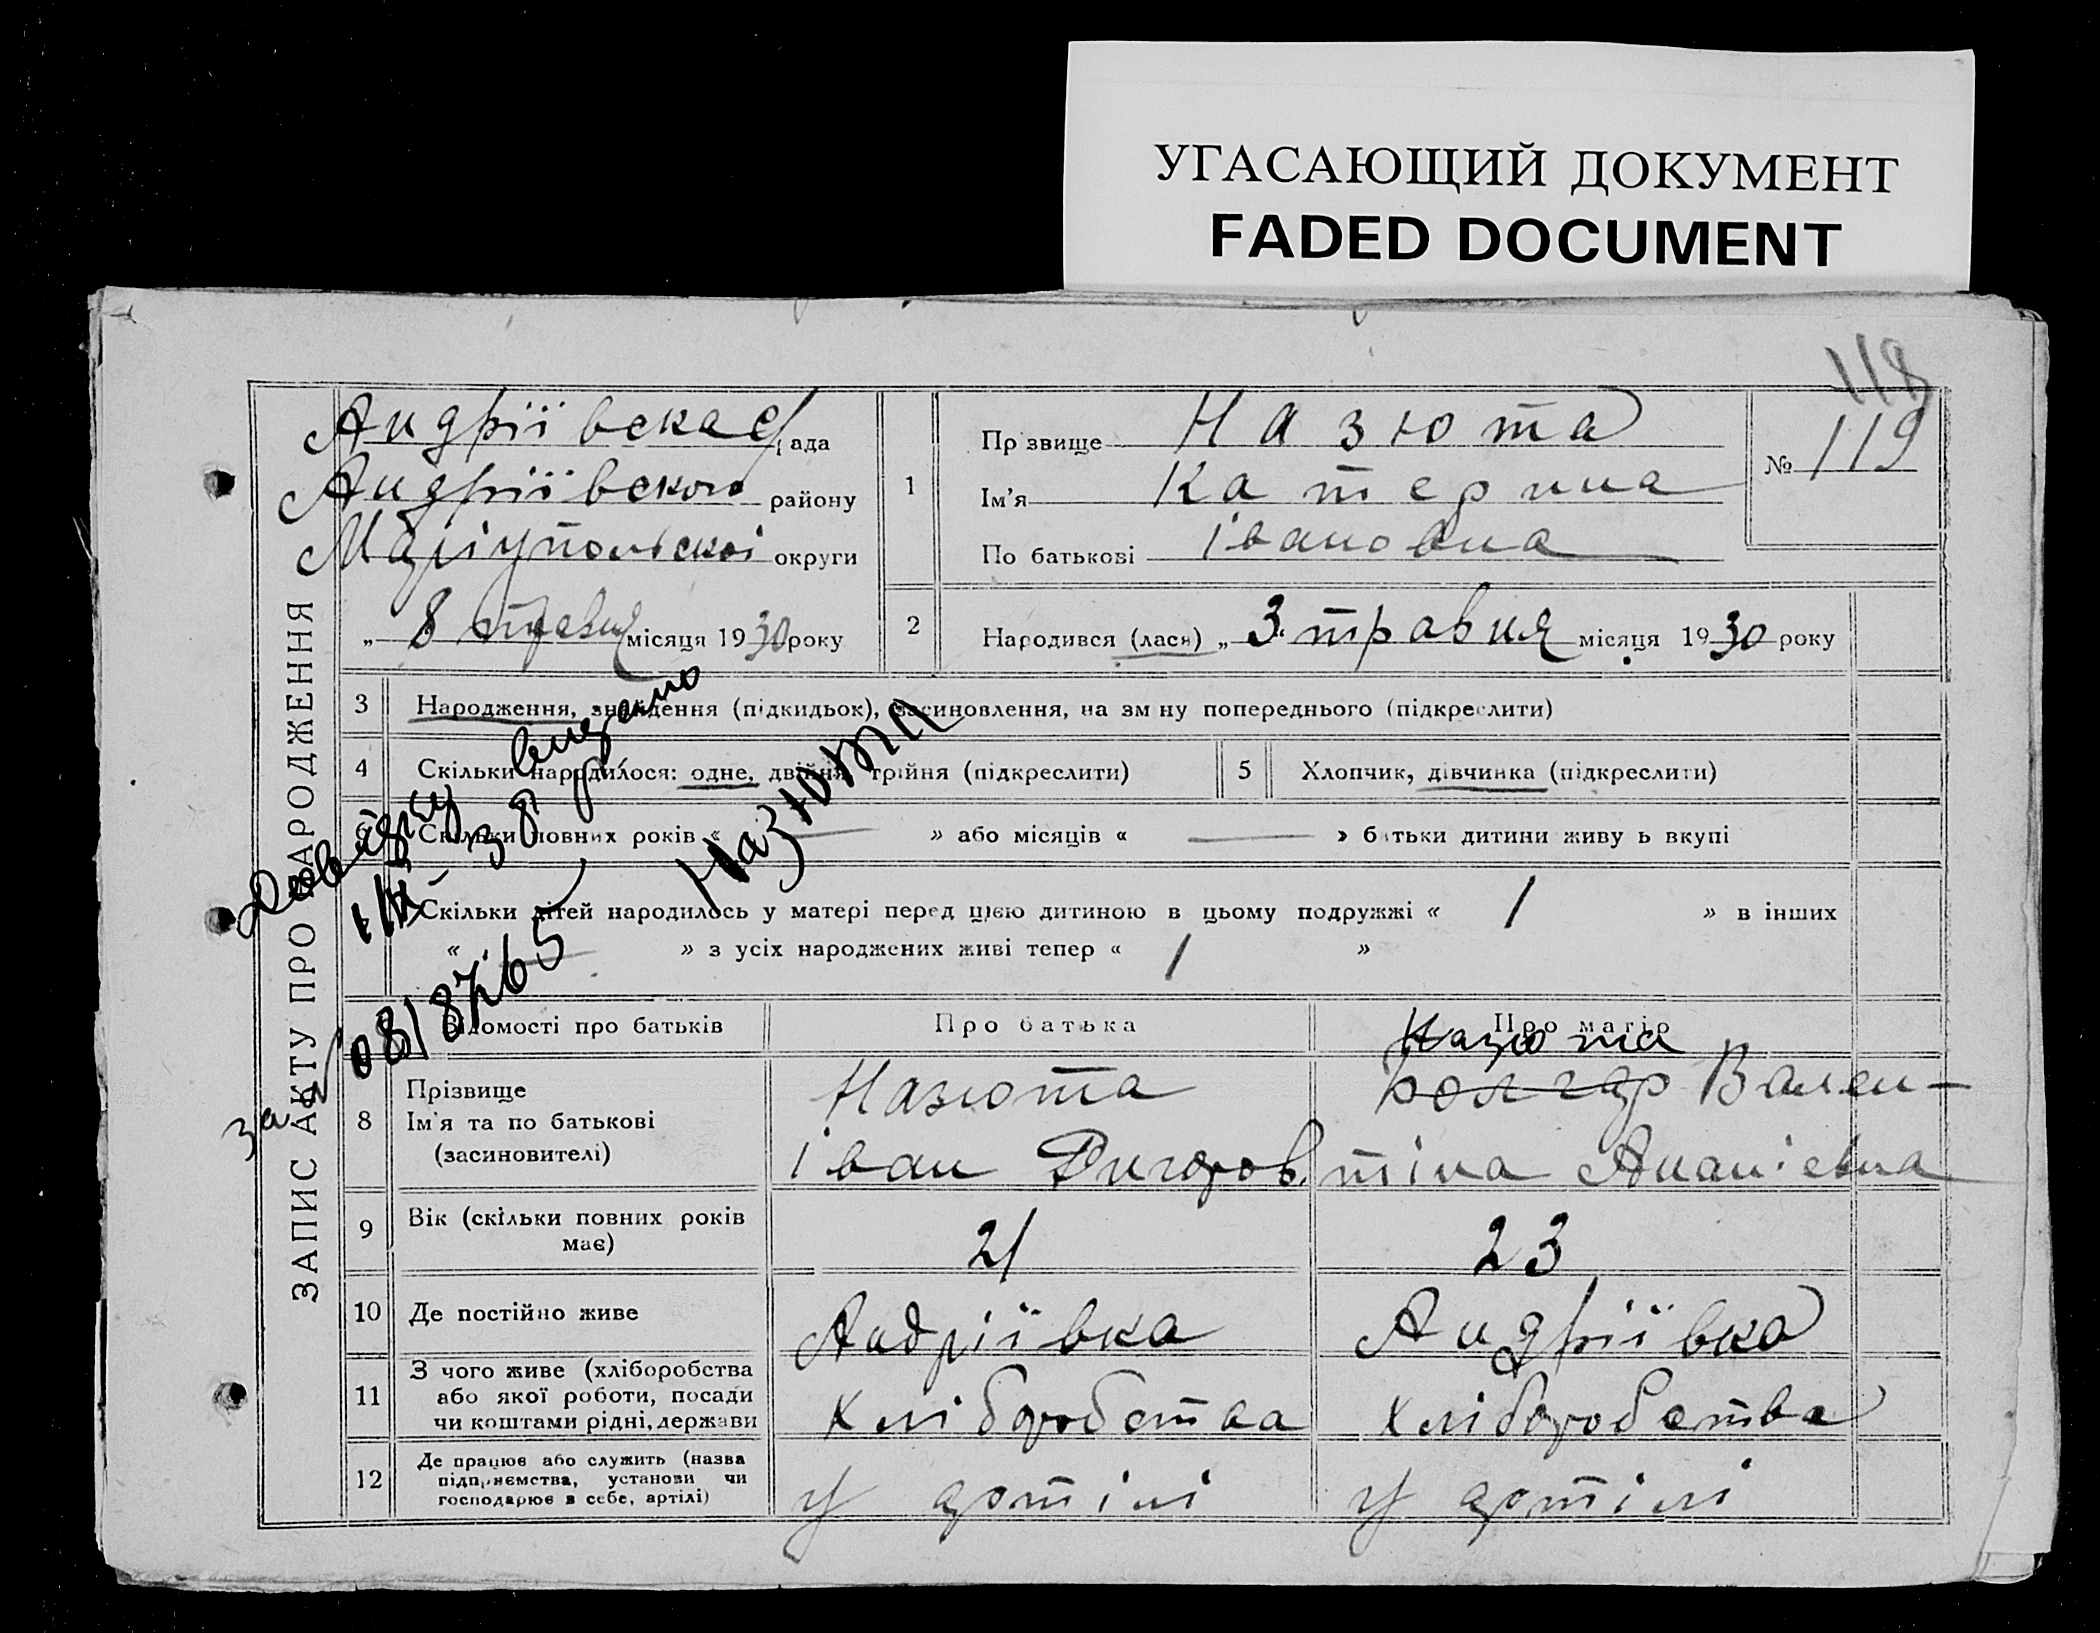 УГАСАЮЩИЙ ДОКУМЕНТ
FADED DOCUMENT
118
ЗАПИС АКТУ ПРО НАРОДЖЕННЯ
Андріївская с/рада
Андріївского району
Маріупольскоі округи
„ 8 травня місяця 1930 року
1
Прізвище Назюта
Ім'я Катерина
По батькові Івановна
№ 119
2
Народився (лася) „ 3 травня місяця 1930 року
3 Народження, знайдення (підкидьок), засиновлення, на зміну попереднього (підкреслити)
4 Скільки народилося: одне, двійня, трійня (підкреслити)
5 Хлопчик, дівчинка (підкреслити)
6 Скільки повних років « — » або місяців « — » батьки дитини живуть вкупі
Скільки дітей народилось у матері перед цією дитиною в цьому подружжі « 1 » в інших
« — » з усіх народжених живі тепер « 1 »
видано
Назюта
за №
Відомості про батьків
Про батька
Про матір
8 Прізвище
Ім'я та по батькові
(засиновителі)
Назюта
Іван
Назюта
Болгар Вален-
тіна Ананіевна
9 Вік (скільки повних років
має)
21
23
10 Де постійно живе
Андріївка
Андріївка
11 З чого живе (хліборобства
або якої роботи, посади
чи коштами рідні, держави
хліборобства
хліборобства
12 Де працює або служить (назва
підприємства, установи чи
господарює в себе, артілі)
у артілі
у артілі